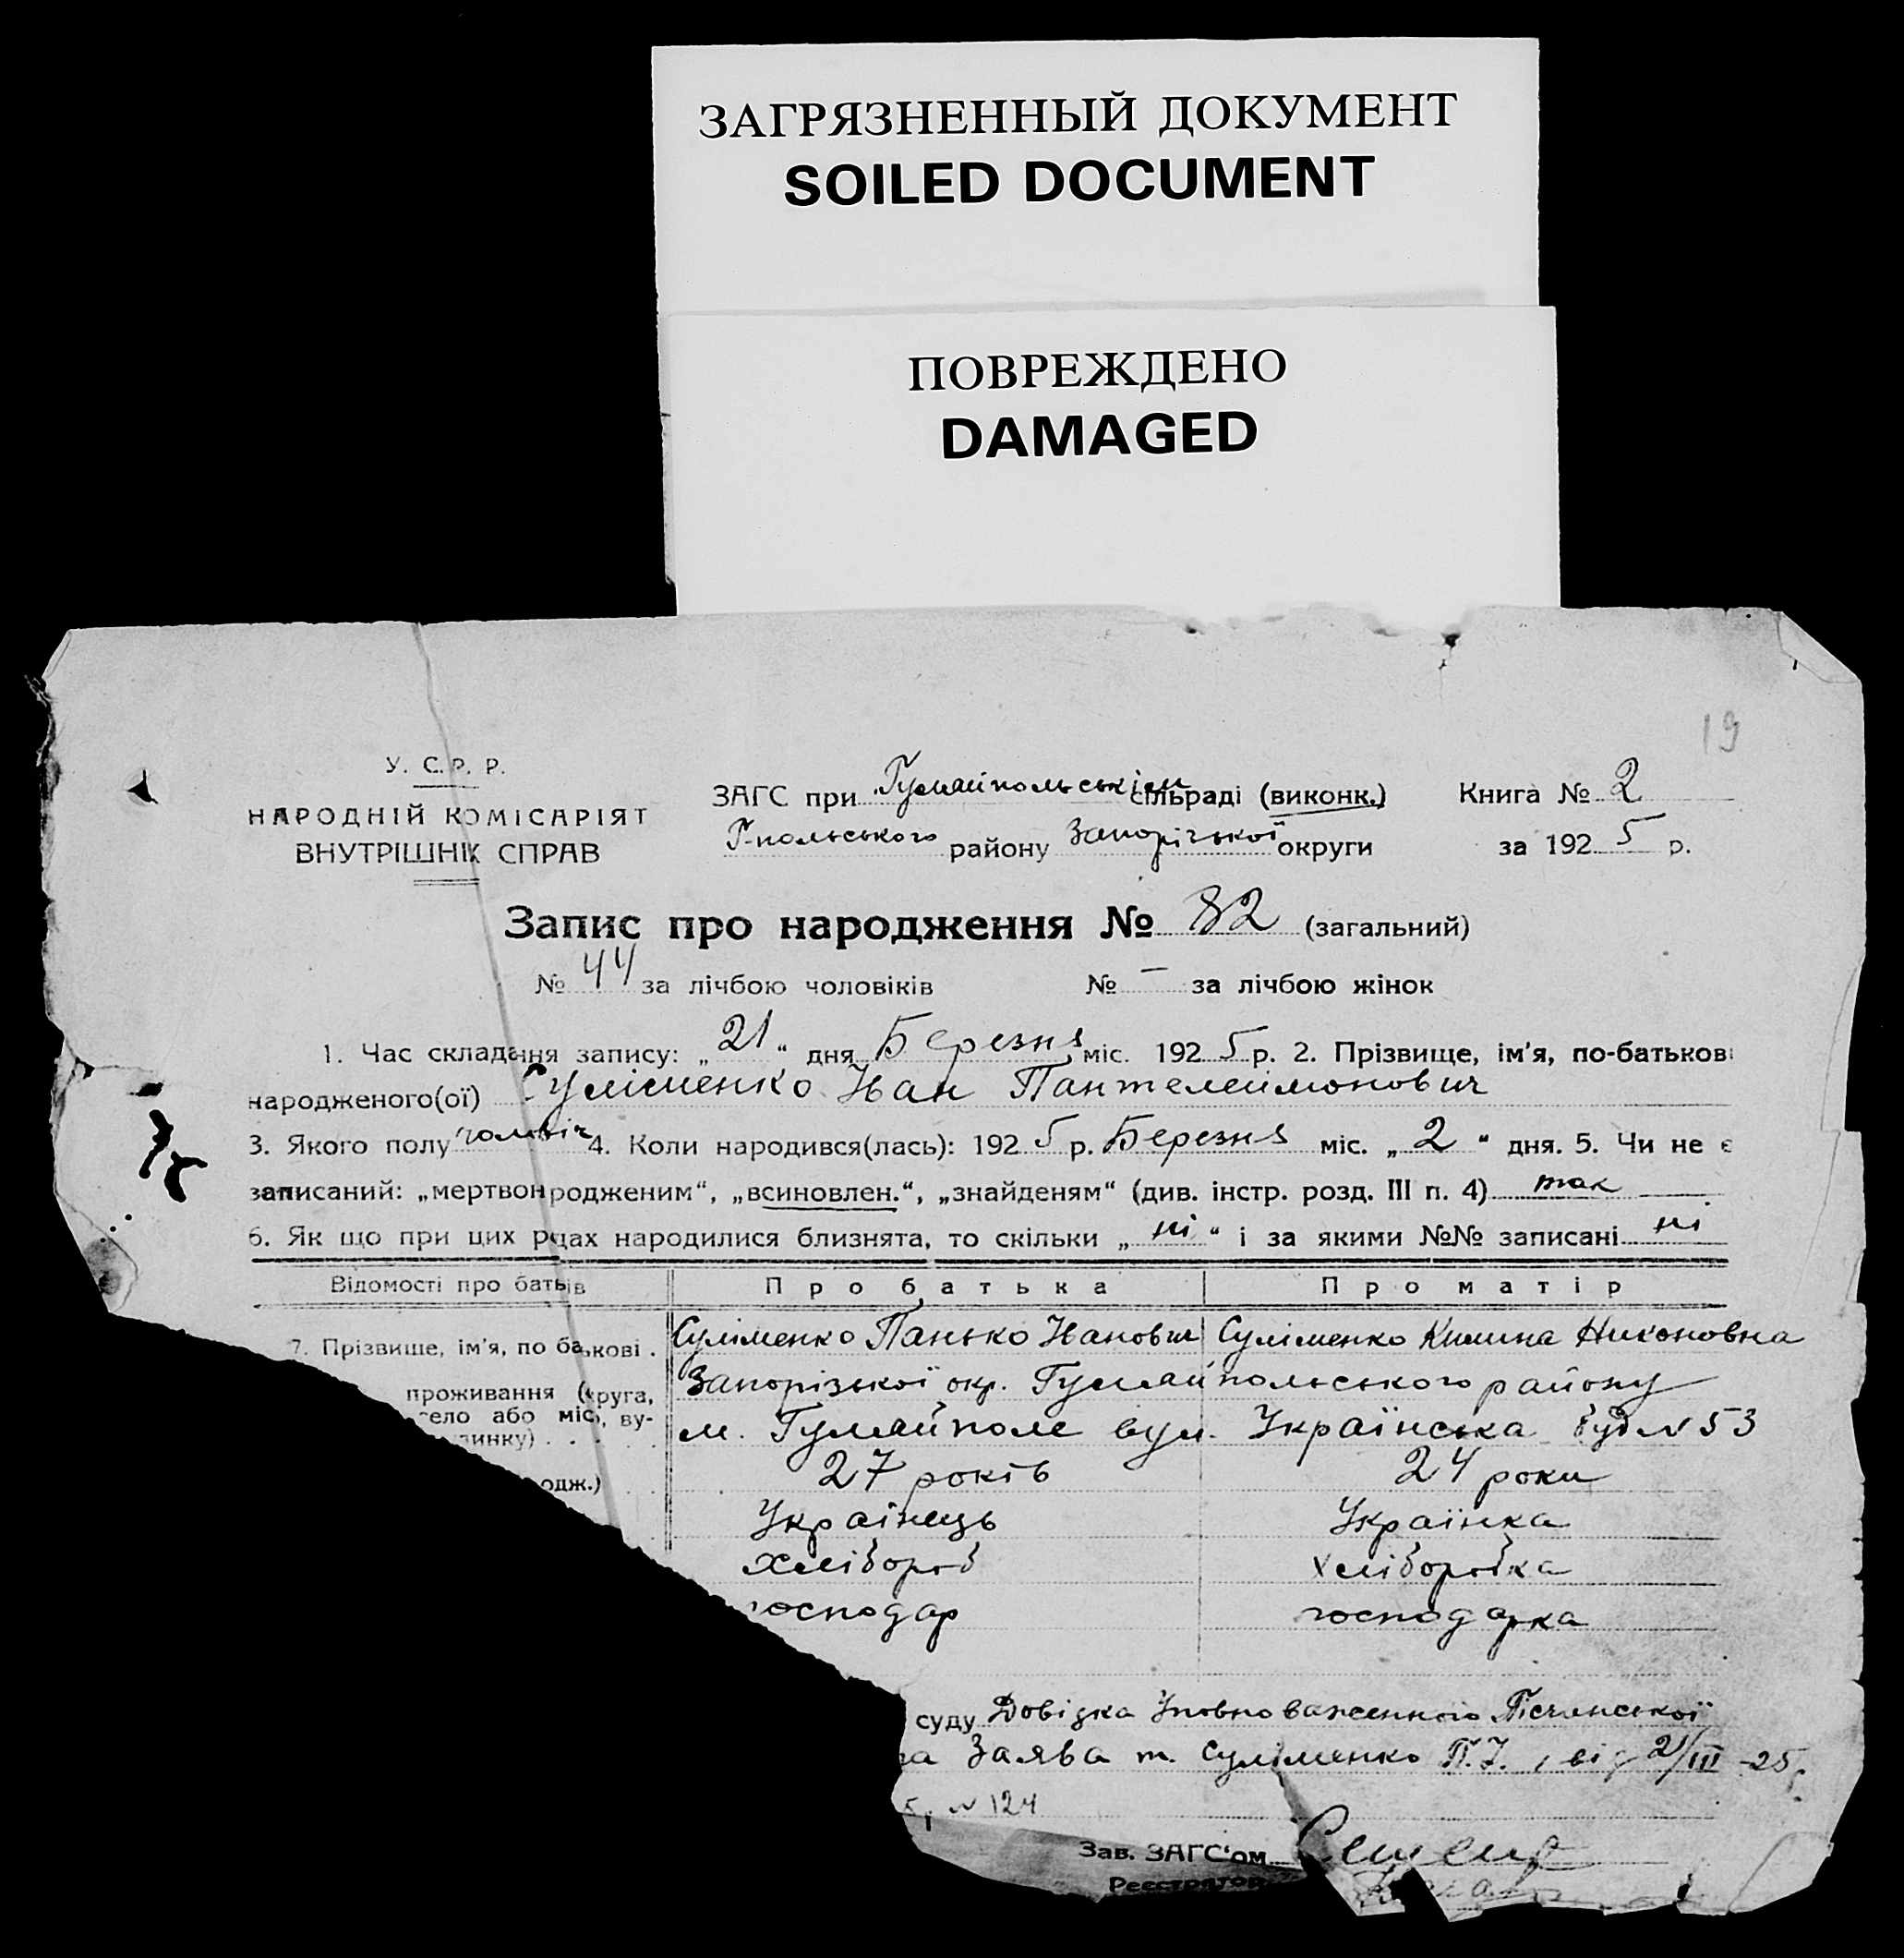 ЗАГРЯЗНЕННЫЙ ДОКУМЕНТ
SOILED DOCUMENT
ПОВРЕЖДЕНО
DAMAGED
19
У. С. Р. Р.
НАРОДНІЙ КОМІСАРІЯТ
ВНУТРІШНІХ СПРАВ
ЗАГС при Гуляйпольськім сільраді (виконк.)
Г-польського району Запорізької округи
Книга № 2
за 1925 р.
Запис про народження № 82 (загальний)
№ 44 за лічбою чоловіків № — за лічбою жінок
1. Час складання запису: „21“ дня Березня міс. 1925 р. 2. Прізвище, ім'я, по-батькові
народженого(ої) Суліменко Іван Пантелеймонович
3. Якого полу чоловіч 4. Коли народився(лась): 1925 р. Березня міс. „2“ дня. 5. Чи не є
записаний: „мертвонродженим“, „всиновлен.“, „знайденям“ (див. інстр. розд. III п. 4) так
6. Як що при цих рдах народилися близнята, то скільки „ні“ і за якими №№ записані ні
Відомості про батьів Про батька Про матір
7. Прізвище, ім'я, по бакові . Суліменко Панько Іванович Суліменко Килина Никоновна
проживання (круга, Запорізької окр. Гуляйпольського району
село або міс, ву-
инку) . . . . м. Гуляйполе вул. Українська буд № 53
одж.) . . 27 років 24 роки
Українець Українка
хлібороб хліборобка
господар господарка
суду Довідка Уповноваженного Пісчанської
та Заява т. Суліменко П.І., від 21/III -25р.
№ 124
Зав. ЗАГС'ом
Реєстратор